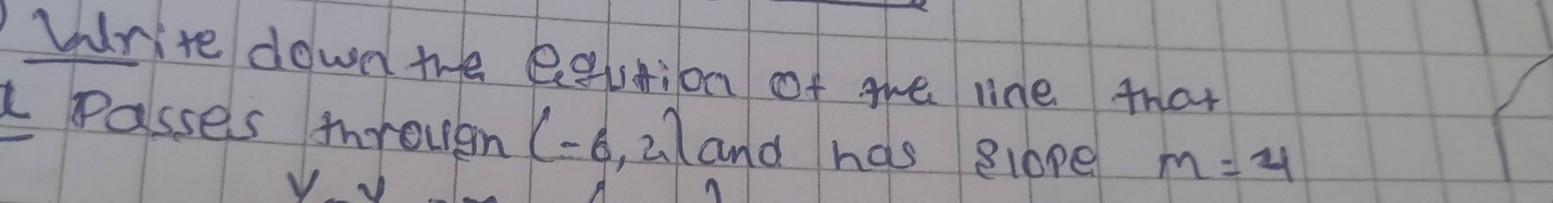 Write down the Eqution of the line that
Passes through (-6, 2) and has slope m = 4